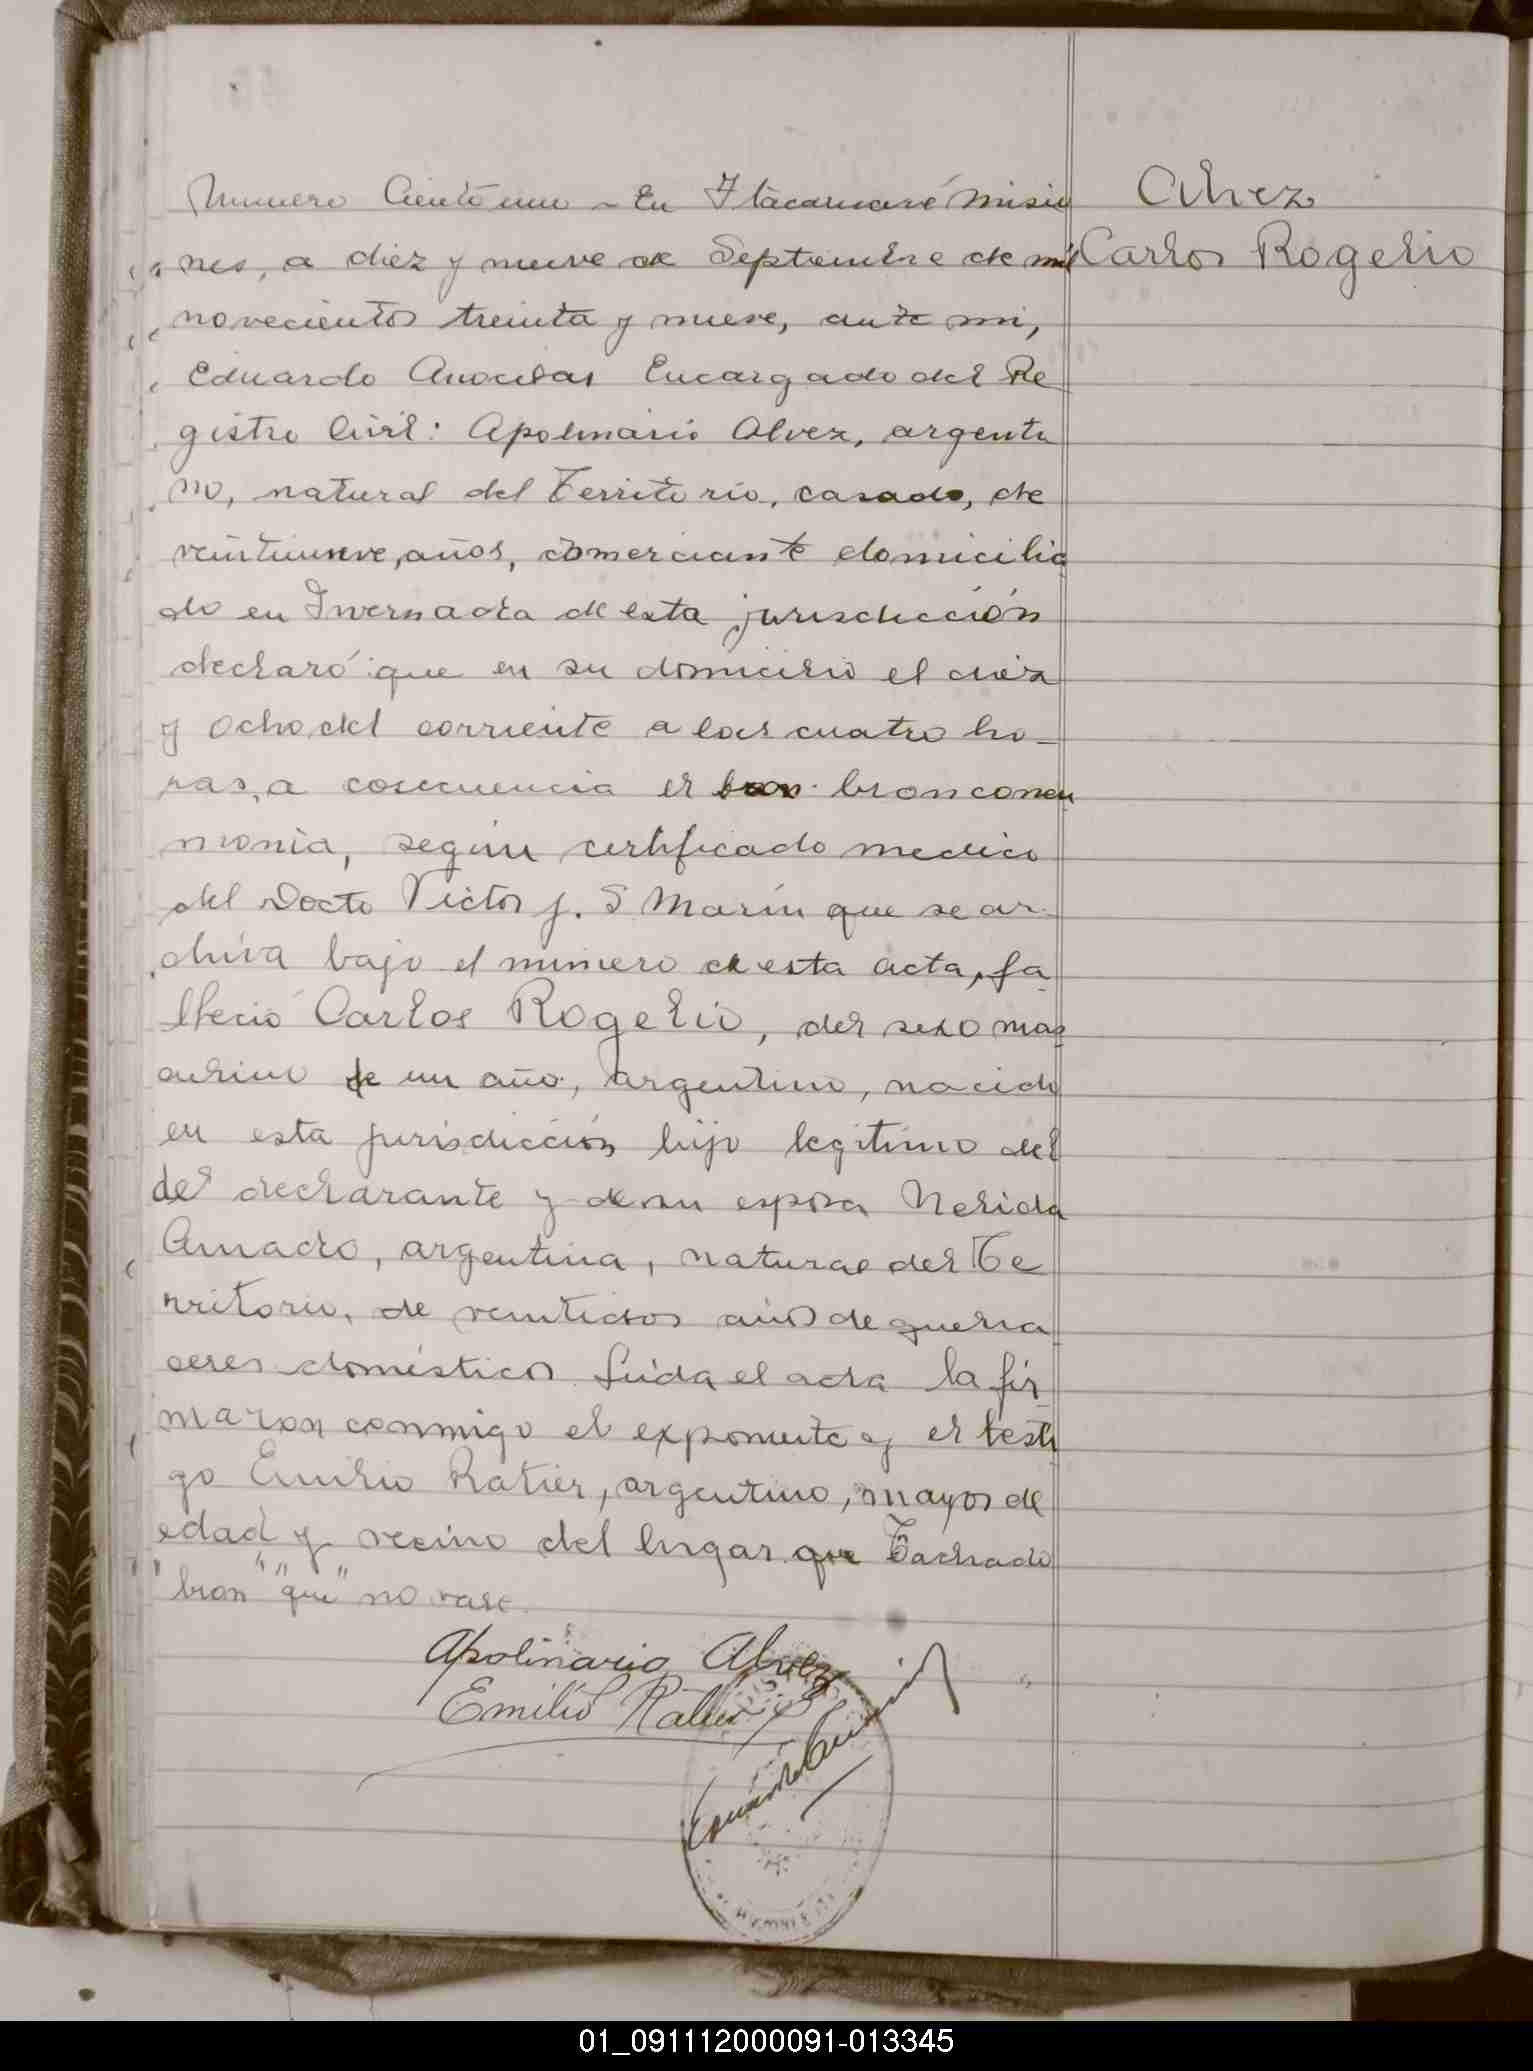 Numero Ciento uno - En Itacaruaré Misio
nes, a diez y nueve de Septiembre de mil
novecientos treinta y nueve, ante mi,
Eduardo Encargado del Re
gistro Civil: Apolinario Alvez, argenti
no, natural del Territorio, casado, de
veintinueve, años, comerciante domicilia
do en Invernada de esta jurisdicción
declaró: que en su domicilio el diez
y ocho del corriente a las cuatro ho-
ras, a cosecuencia el bron bronconeu
monia, según certificado medico
del Docto Victor J. S Marín que se ar-
chiva bajo el numero de esta acta, fa-
lleció Carlos Rogelio, del sexo mas
culino de un año, argentino, nacido
en esta jurisdicción hijo legitimo del
del declarante y de su esposa Nelida
Amado, argentina, natural del Te
rritorio, de veintidos años de queha
ceres domésticos Leida el acta la fir-
maron conmigo el exponente y el testi
go Emilio Ratier, argentino, mayor de
edad y vecino del lugar que Tachado
"bron" "que" no vale.
Alvez
Carlos Rogelio
Apolinario Alvez
Emilio Ratier
01_091112000091-013345